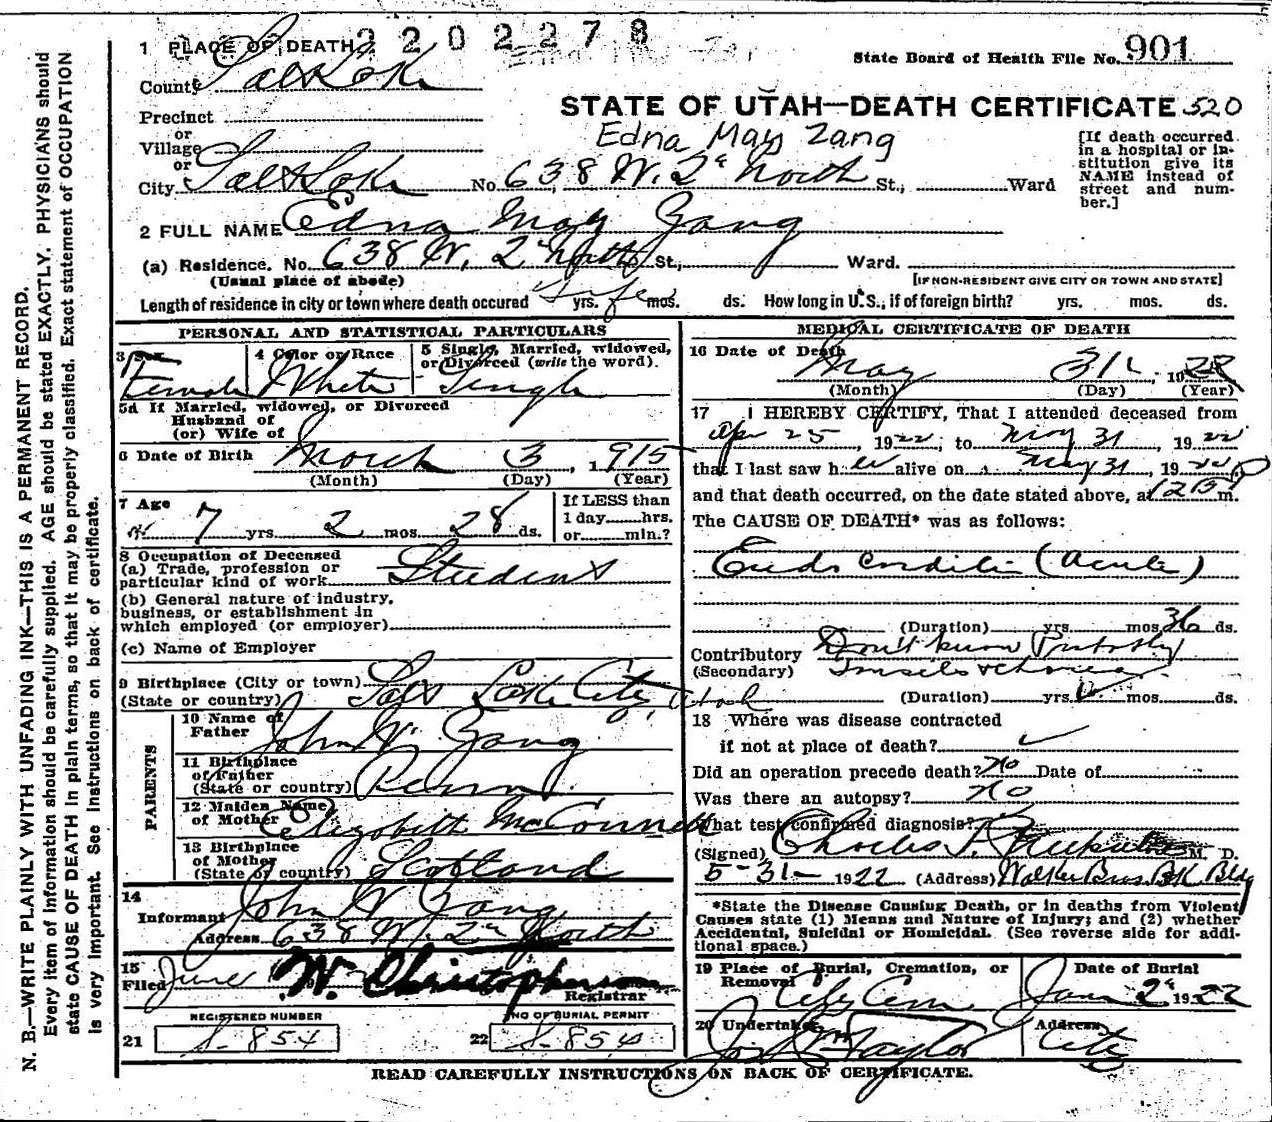 2202278
1 PLACE OF DEATH
State Board of Health File No. 901
County Salt Lake
STATE OF UTAH—DEATH CERTIFICATE 520
Precinct
or
Village
or
Edna May Zang
[If death occurred in a hospital or institution give its NAME instead of street and number.]
City Salt Lake No. 638 W. 2d North St., Ward
2 FULL NAME Edna May Zang
(a) Residence. No. 638 W. 2d North St., Ward.
(Usual place of abode) [IF NON-RESIDENT GIVE CITY OR TOWN AND STATE]
Length of residence in city or town where death occured Life yrs. mos. ds. How long in U.S., if of foreign birth? yrs. mos. ds.
PERSONAL AND STATISTICAL PARTICULARS
3 Sex
Female
4 Color or Race
White
5 Single, Married, widowed,
or Divorced (write the word).
Single
5a If Married, widowed, or Divorced
Husband of
(or) Wife of
6 Date of Birth March 3, 1915
(Month) (Day) (Year)
7 Age
7 yrs. 2 mos. 28 ds.
If LESS than
1 day......hrs.
or......min.?
8 Occupation of Deceased
(a) Trade, profession or
particular kind of work Student
(b) General nature of industry,
business, or establishment in
which employed (or employer)
(c) Name of Employer
9 Birthplace (City or town)
(State or country) Salt Lake City, Utah
PARENTS
10 Name of
Father John W. Zang
11 Birthplace
of Father
(State or country) Penn
12 Maiden Name
of Mother Elizabeth McConnell
13 Birthplace
of Mother
(State or country) Scotland
14
Informant John W. Zang
Address 638 W. 2d North
15
Filed June W. Christopherson
Registrar
REGISTERED NUMBER
21 S-854
NO OF BURIAL PERMIT
22 S-854
MEDICAL CERTIFICATE OF DEATH
16 Date of Death
May 31, 1922
(Month) (Day) (Year)
17 I HEREBY CERTIFY, That I attended deceased from
Apr 25, 1922 to May 31, 1922
that I last saw her alive on May 31 1922
and that death occurred, on the date stated above, at m.
The CAUSE OF DEATH* was as follows:
Endo Carditis (Acute)
(Duration) yrs. mos. 36 ds.
Contributory Don't know Probably
(Secondary)
(Duration) yrs. mos. ds.
18 Where was disease contracted
if not at place of death?
Did an operation precede death? No Date of
Was there an autopsy? No
What test confirmed diagnosis?
(Signed) Charles M. D.
5-31-1922 (Address) Walker Bros. Bk Bldg
*State the Disease Causing Death, or in deaths from Violent
Causes state (1) Means and Nature of Injury; and (2) whether
Accidental, Suicidal or Homicidal. (See reverse side for addi-
tional space.)
19 Place of Burial, Cremation, or
Removal
City Cem
Date of Burial
June 2d 1922
20 Undertaker
Jos. Wm Taylor
Address
City
READ CAREFULLY INSTRUCTIONS ON BACK OF CERTIFICATE.
N. B.—WRITE PLAINLY WITH UNFADING INK—THIS IS A PERMANENT RECORD.
Every item of information should be carefully supplied. AGE should be stated EXACTLY. PHYSICIANS should
state CAUSE OF DEATH in plain terms, so that it may be properly classified. Exact statement of OCCUPATION
is very important. See instructions on back of certificate.